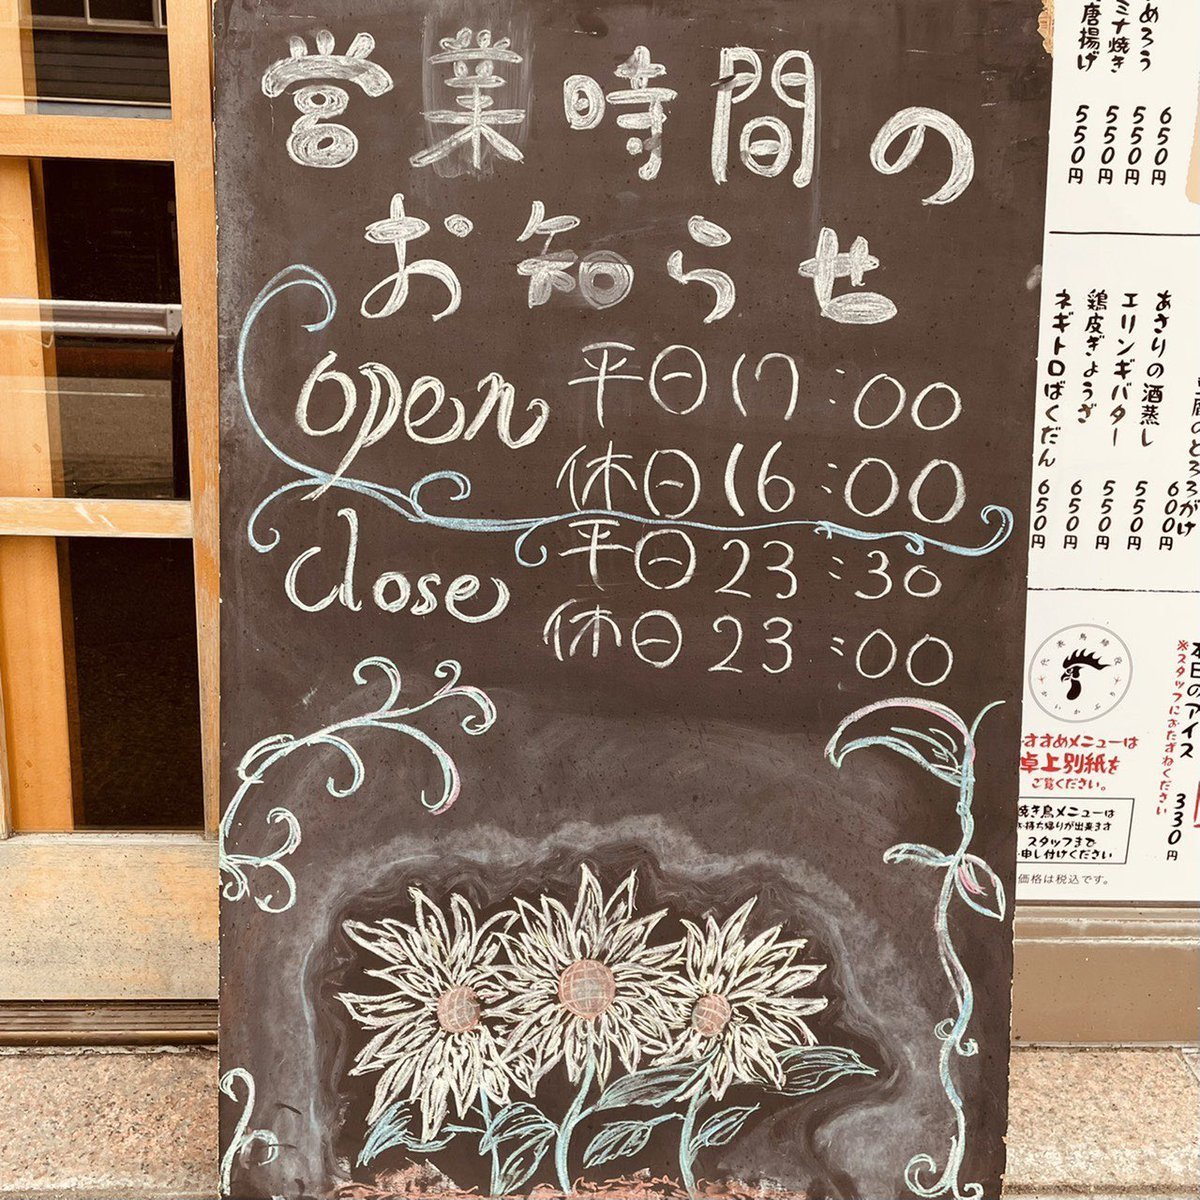 営業時間の
お知らせ
open 平日 17:00
休日 16:00
close 平日 23:30
休日 23:00
650円
550円
550円
550円
唐揚げ
あさりの酒蒸し
エリンギバター
鶏皮ぎょうざ
ネギトロばくだん
600円
550円
550円
650円
650円
本日のアイス 330円
※スタッフにおたずねください
すすめメニューは
卓上別紙を
ご覧ください。
焼き鳥メニューは
お持ち帰りが出来ます
スタッフまで
申し付けください
価格は税込です。